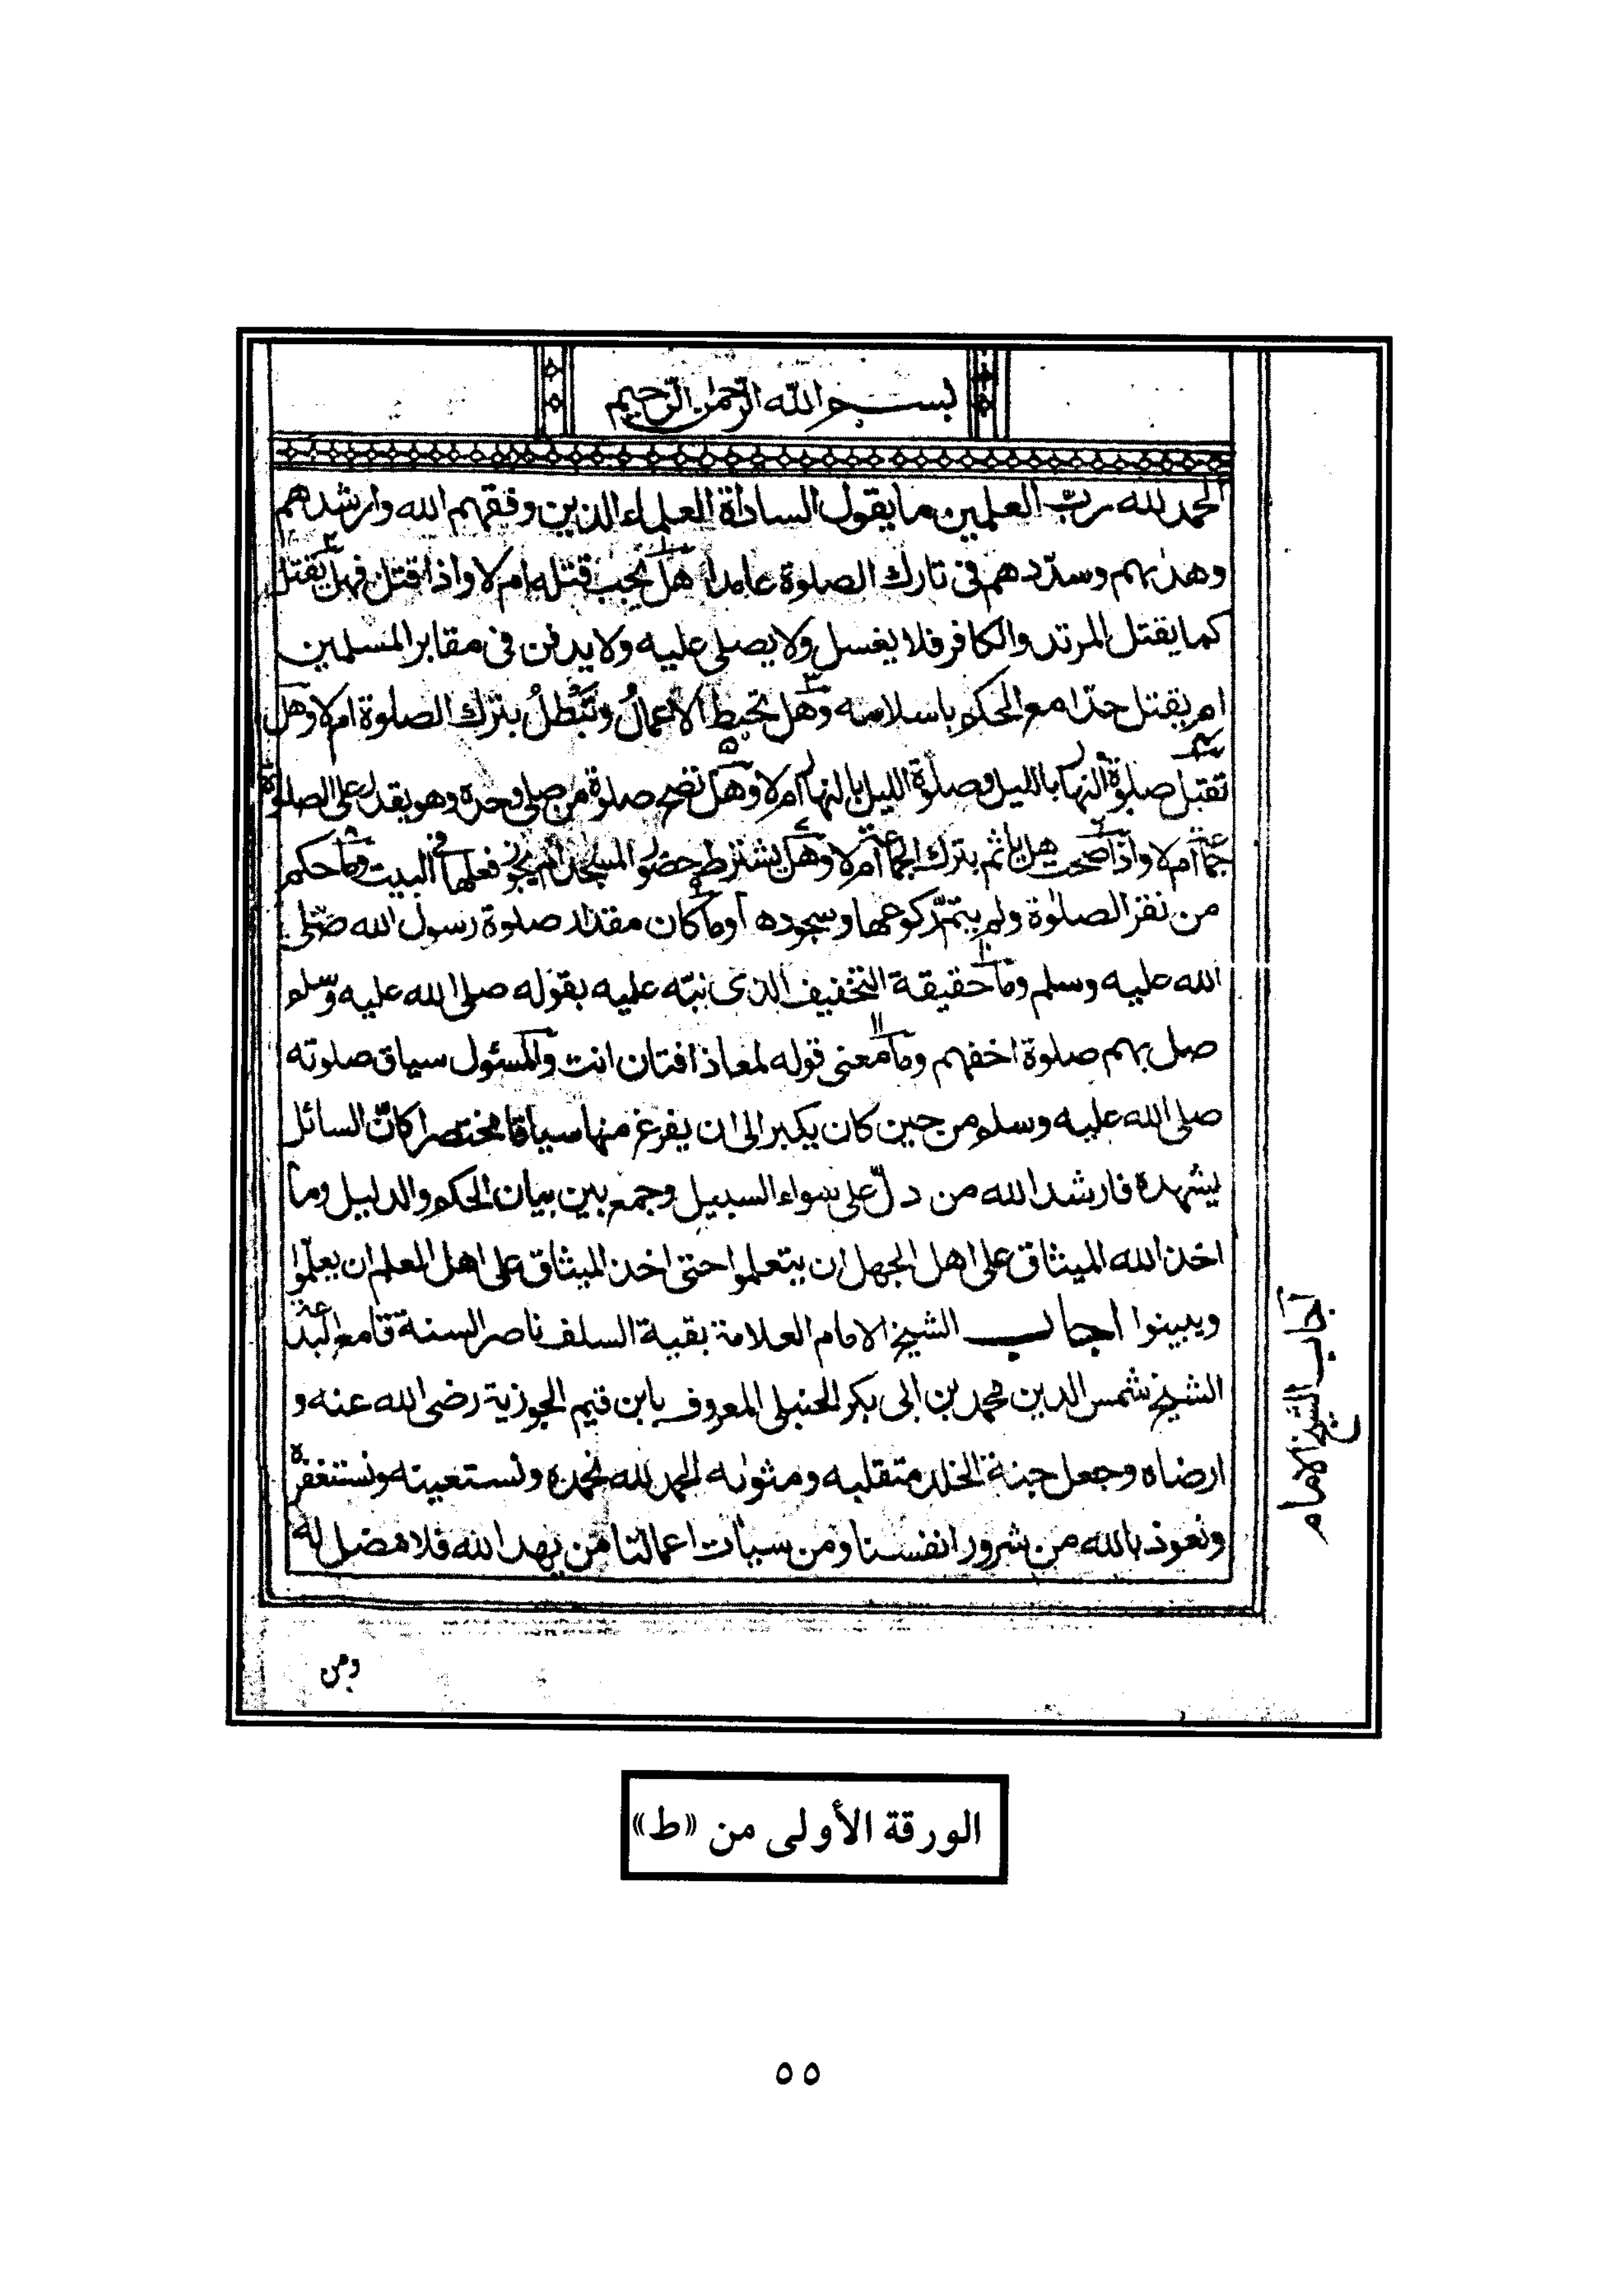 بسم الله الرحمن الرحيم
الحمد لله رب العلمين ما يقول السادة العلماء الذين وفقهم الله وارشدهم
وهدٰىهم وسدّدهم فى تارك الصلوة عامدا هل يجب قتله ام لا واذا قتل فهل يقتل
كما يقتل المرتد والكافر فلا يغسل ولا يصلى عليه ولا يدفن فى مقابر المسلمين
ام يقتل حدّا مع الحكم باسلامه وهل تحبط الاعمالُ وتَبْطلُ بترك الصلوة ام لا وهل
تقبل صلوة النهار بالليل وصلوة الليل بالنهار ام لا وهل تصح صلوة من صلى وحده وهو يقدر على الصلوة
جماعة ام لا واذا صحت هل ياثم بترك الجماعة ام لا وهل يشترط حضور المسجد ام يجوز فعلها فى البيت وما حكم
من نقر الصلوة ولم يتمّ ركوعها وسجودها وما كان مقدار صلوة رسول الله صلى
الله عليه وسلم وما حقيقة التخفيف الذى نبّه عليه بقوله صلى الله عليه وسلم
صل بهم صلوة اخفهم وما معنى قوله لمعاذ افتان انت والمسئول سياق صلوته
صلى الله عليه وسلم من حين كان يكبر الى ان يفرغ منها سياقا مختصرا كانّ السائل
يشهده فارشد الله من دلّ على سواء السبيل وجمع بين بيان الحكم والدليل وما
اخذ الله الميثاق على اهل الجهل ان يتعلموا حتى اخذ الميثاق على اهل العلم ان يعلّموا
ويبينوا اجاب الشيخ الامام العلامة بقية السلف ناصر السنة قامع البدعة
الشيخ شمس الدين محمد بن ابى بكر الحنبلى المعروف بابن قيم الجوزية رضى الله عنه و
ارضاه وجعل جنة الخلد متقلبه ومثوٰىه الحمد لله نحمده ونستعينه ونستغفره
ونعوذ بالله من شرور انفسنا ومن سيأت اعمالنا من يهد الله فلا مضل له
ومن
اجاب الشيخ الامام
الورقة الأولى من «ط»
٥٥